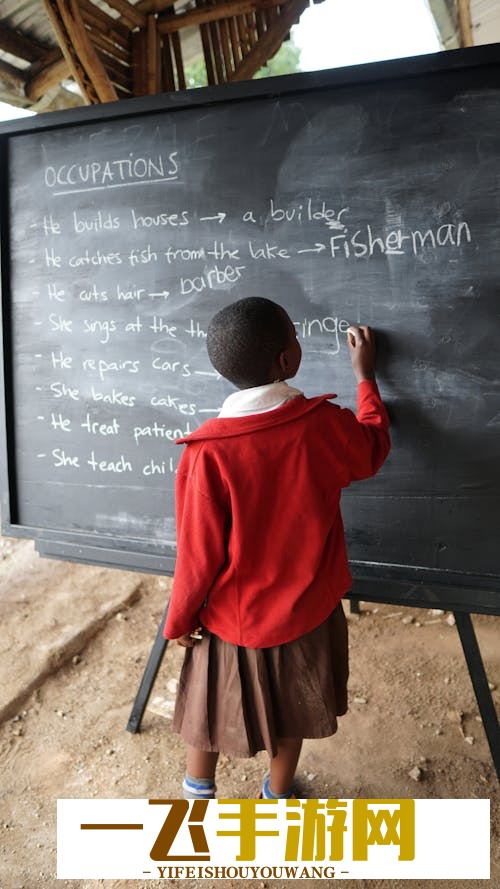 OCCUPATIONS
- He builds houses → a builder
- He catches fish from the lake → Fisherman
- He cuts hair → barber
- She sings at the th
- He repairs cars →
- She bakes cakes →
- He treat patient
- She teach chil
一飞手游网
- YIFEISHOUYOUWANG -